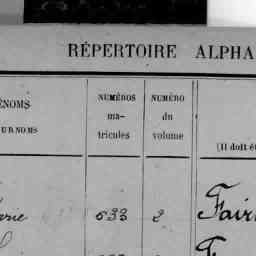 RÉPERTOIRE ALPHA
ÉNOMS
URNOMS
NUMÉROS
ma-
tricules
NUMÉRO
du
volume
(Il doit ê
533 2 Fair